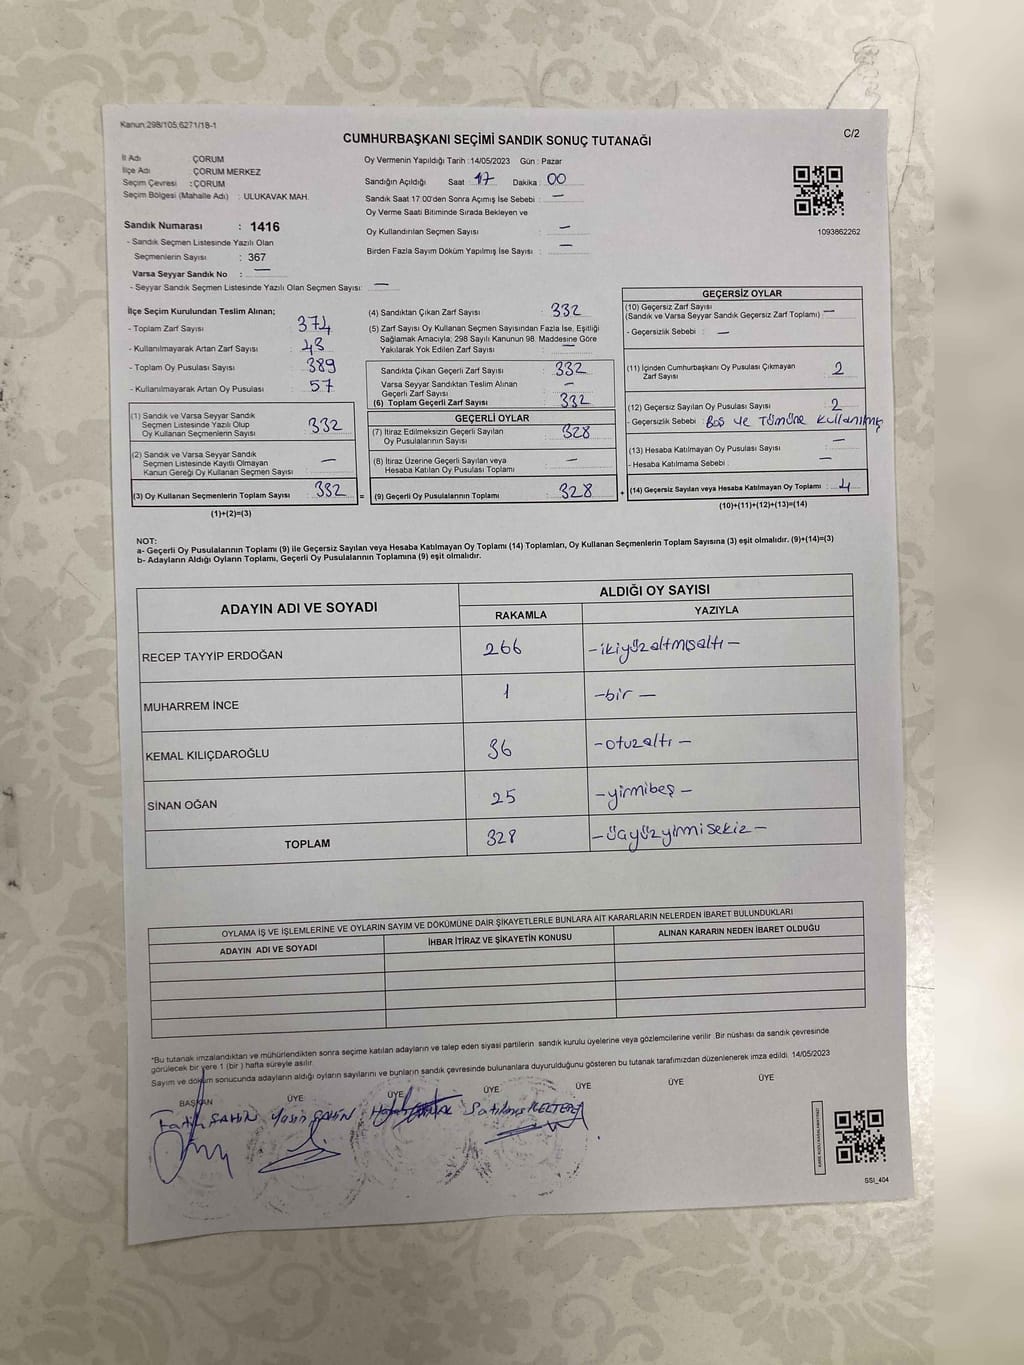 Kanun:298/105,6271/18-1
C/2
CUMHURBAŞKANI SEÇİMİ SANDIK SONUÇ TUTANAĞI
İl Adı ÇORUM
İlçe Adı ÇORUM MERKEZ
Seçim Çevresi : ÇORUM
Seçim Bölgesi (Mahalle Adı) : ULUKAVAK MAH.
Sandık Numarası : 1416
- Sandık Seçmen Listesinde Yazılı Olan
Seçmenlerin Sayısı : 367
Varsa Seyyar Sandık No : —
- Seyyar Sandık Seçmen Listesinde Yazılı Olan Seçmen Sayısı: —
Oy Vermenin Yapıldığı Tarih : 14/05/2023 Gün : Pazar
Sandığın Açıldığı Saat 17 Dakika : 00
Sandık Saat 17:00'den Sonra Açımış İse Sebebi : —
Oy Verme Saati Bitiminde Sırada Bekleyen ve
Oy Kullandırılan Seçmen Sayısı : —
Birden Fazla Sayım Döküm Yapılmış İse Sayısı : —
1093862262
İlçe Seçim Kurulundan Teslim Alınan;
- Toplam Zarf Sayısı : 374
- Kullanılmayarak Artan Zarf Sayısı : 43
- Toplam Oy Pusulası Sayısı : 389
- Kullanılmayarak Artan Oy Pusulası : 57
(1) Sandık ve Varsa Seyyar Sandık
Seçmen Listesinde Yazılı Olup
Oy Kullanan Seçmenlerin Sayısı : 332
(2) Sandık ve Varsa Seyyar Sandık
Seçmen Listesinde Kayıtlı Olmayan
Kanun Gereği Oy Kullanan Seçmen Sayısı : —
(3) Oy Kullanan Seçmenlerin Toplam Sayısı : 332
(1)+(2)=(3)
(4) Sandıktan Çıkan Zarf Sayısı : 332
(5) Zarf Sayısı Oy Kullanan Seçmen Sayısından Fazla İse, Eşitliği
Sağlamak Amacıyla; 298 Sayılı Kanunun 98. Maddesine Göre
Yakılarak Yok Edilen Zarf Sayısı : —
Sandıkta Çıkan Geçerli Zarf Sayısı : 332
Varsa Seyyar Sandıktan Teslim Alınan
Geçerli Zarf Sayısı : —
(6) Toplam Geçerli Zarf Sayısı : 332
GEÇERLİ OYLAR
(7) İtiraz Edilmeksizin Geçerli Sayılan
Oy Pusulalarının Sayısı : 328
(8) İtiraz Üzerine Geçerli Sayılan veya
Hesaba Katılan Oy Pusulası Toplamı : —
= (9) Geçerli Oy Pusulalarının Toplamı : 328
GEÇERSİZ OYLAR
(10) Geçersiz Zarf Sayısı
(Sandık ve Varsa Seyyar Sandık Geçersiz Zarf Toplamı) —
- Geçersizlik Sebebi : —
(11) İçinden Cumhurbaşkanı Oy Pusulası Çıkmayan
Zarf Sayısı : 2
(12) Geçersiz Sayılan Oy Pusulası Sayısı : 2
- Geçersizlik Sebebi : Boş ve Tümüne kullanılmış
(13) Hesaba Katılmayan Oy Pusulası Sayısı : —
- Hesaba Katılmama Sebebi : —
+ (14) Geçersiz Sayılan veya Hesaba Katılmayan Oy Toplamı : 4
(10)+(11)+(12)+(13)=(14)
NOT:
a- Geçerli Oy Pusulalarının Toplamı (9) ile Geçersiz Sayılan veya Hesaba Katılmayan Oy Toplamı (14) Toplamları, Oy Kullanan Seçmenlerin Toplam Sayısına (3) eşit olmalıdır. (9)+(14)=(3)
b- Adayların Aldığı Oyların Toplamı, Geçerli Oy Pusulalarının Toplamına (9) eşit olmalıdır.
ADAYIN ADI VE SOYADI ALDIĞI OY SAYISI
RAKAMLA YAZIYLA
RECEP TAYYİP ERDOĞAN 266 -ikiyüzaltmışaltı-
MUHARREM İNCE 1 -bir-
KEMAL KILIÇDAROĞLU 36 -otuzaltı-
SİNAN OĞAN 25 -yirmibeş-
TOPLAM 328 -üçyüzyirmisekiz-
OYLAMA İŞ VE İŞLEMLERİNE VE OYLARIN SAYIM VE DÖKÜMÜNE DAİR ŞİKAYETLERLE BUNLARA AİT KARARLARIN NELERDEN İBARET BULUNDUKLARI
ADAYIN ADI VE SOYADI İHBAR İTİRAZ VE ŞİKAYETİN KONUSU ALINAN KARARIN NEDEN İBARET OLDUĞU
*Bu tutanak imzalandıktan ve mühürlendikten sonra seçime katılan adayların ve talep eden siyasi partilerin sandık kurulu üyelerine veya gözlemcilerine verilir. Bir nüshası da sandık çevresinde
görülecek bir yere 1 (bir) hafta süreyle asılır.
Sayım ve döküm sonucunda adayların aldığı oyların sayılarını ve bunların sandık çevresinde bulunanlara duyurulduğunu gösteren bu tutanak tarafımızdan düzenlenerek imza edildi. 14/05/2023
BAŞKAN ÜYE ÜYE ÜYE ÜYE ÜYE ÜYE
Fatih ŞAHİN Yasin ŞAHİN Satılmış
SSI_404